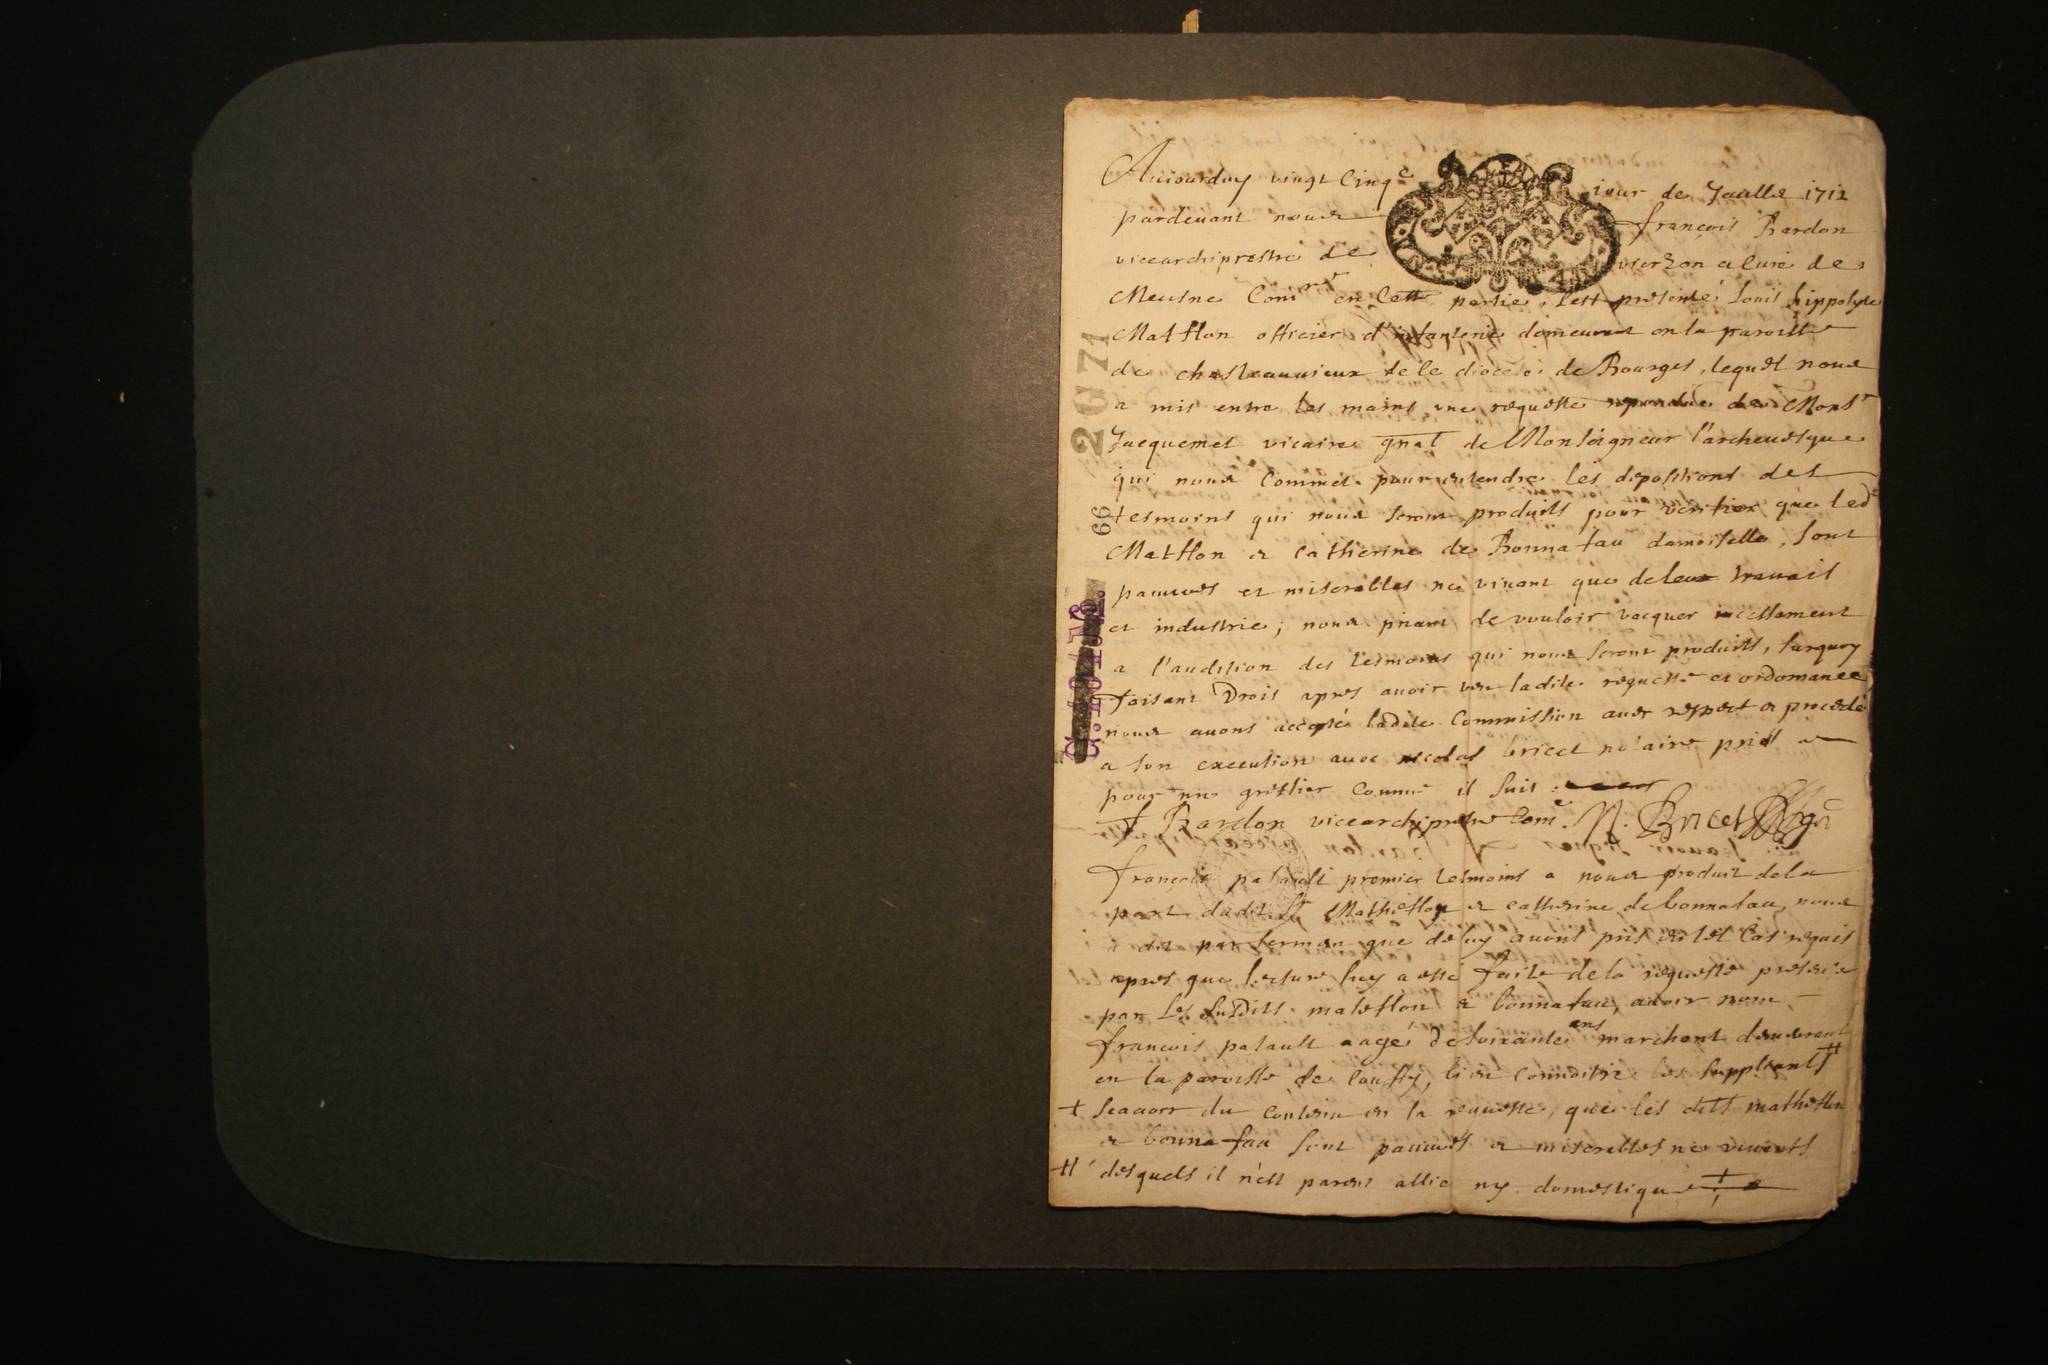 Auiourduy vingt Cinqe iour de Juille 1712
pardeuant nous françois Bardon
vicearchiprestre de vierzon a Curé de
Meusne Comre en Cette partie, s'est presenté Louis hippolyte
Matflon officier d'infanterie demeurant en la paroisse
de chasteauuieux de le diocese de Bourges, lequel nous
a mis entre les mains vne requeste repondue de Monsr
Jacquemet vicaire gnal de Monseigneur l'archeuesque
qui nous Commet pour entendre les depositions des
tesmoins qui nous seront produits pour verifier que led
Matflon & Catherine de Bonnafau damoiselle, sont
pauures et miserables ne viuant que de leur trauail
et industrie; nous priant de vouloir vacquer incessament
a l'audition des tesmoins qui nous seront produits, surquoy
faisant Droit apres auoir veu ladite requeste et ordonnance
nous auons accepté ladite Commission auec respect & procedé
a son execution auec nicolas bricet notaire pris
pour nre greffier Comme il suit
F Bardon vicearchiprestre Come. N. Bricet
françois patault premier tesmoins a nous produit de la
part dudit Sr Matheflon & catherine de bonnafau, nous
a dit par serman que de luy auons pris en tel Cas requis
apres que lecture luy a esté faite de la requeste presentée
par Les suDits mateflon & bonnafau, auoir nom
françois patault aagé de soixante ans marchant demeurant
en la paroisse de Couffy, bien connoitre les suppliants #
+ scauoir du contenu en la requeste, que les dits matheflon
& bonnafau sont pauures & miserables ne viuants
# desquels il n'est parent allié ny domestique +
2071
66